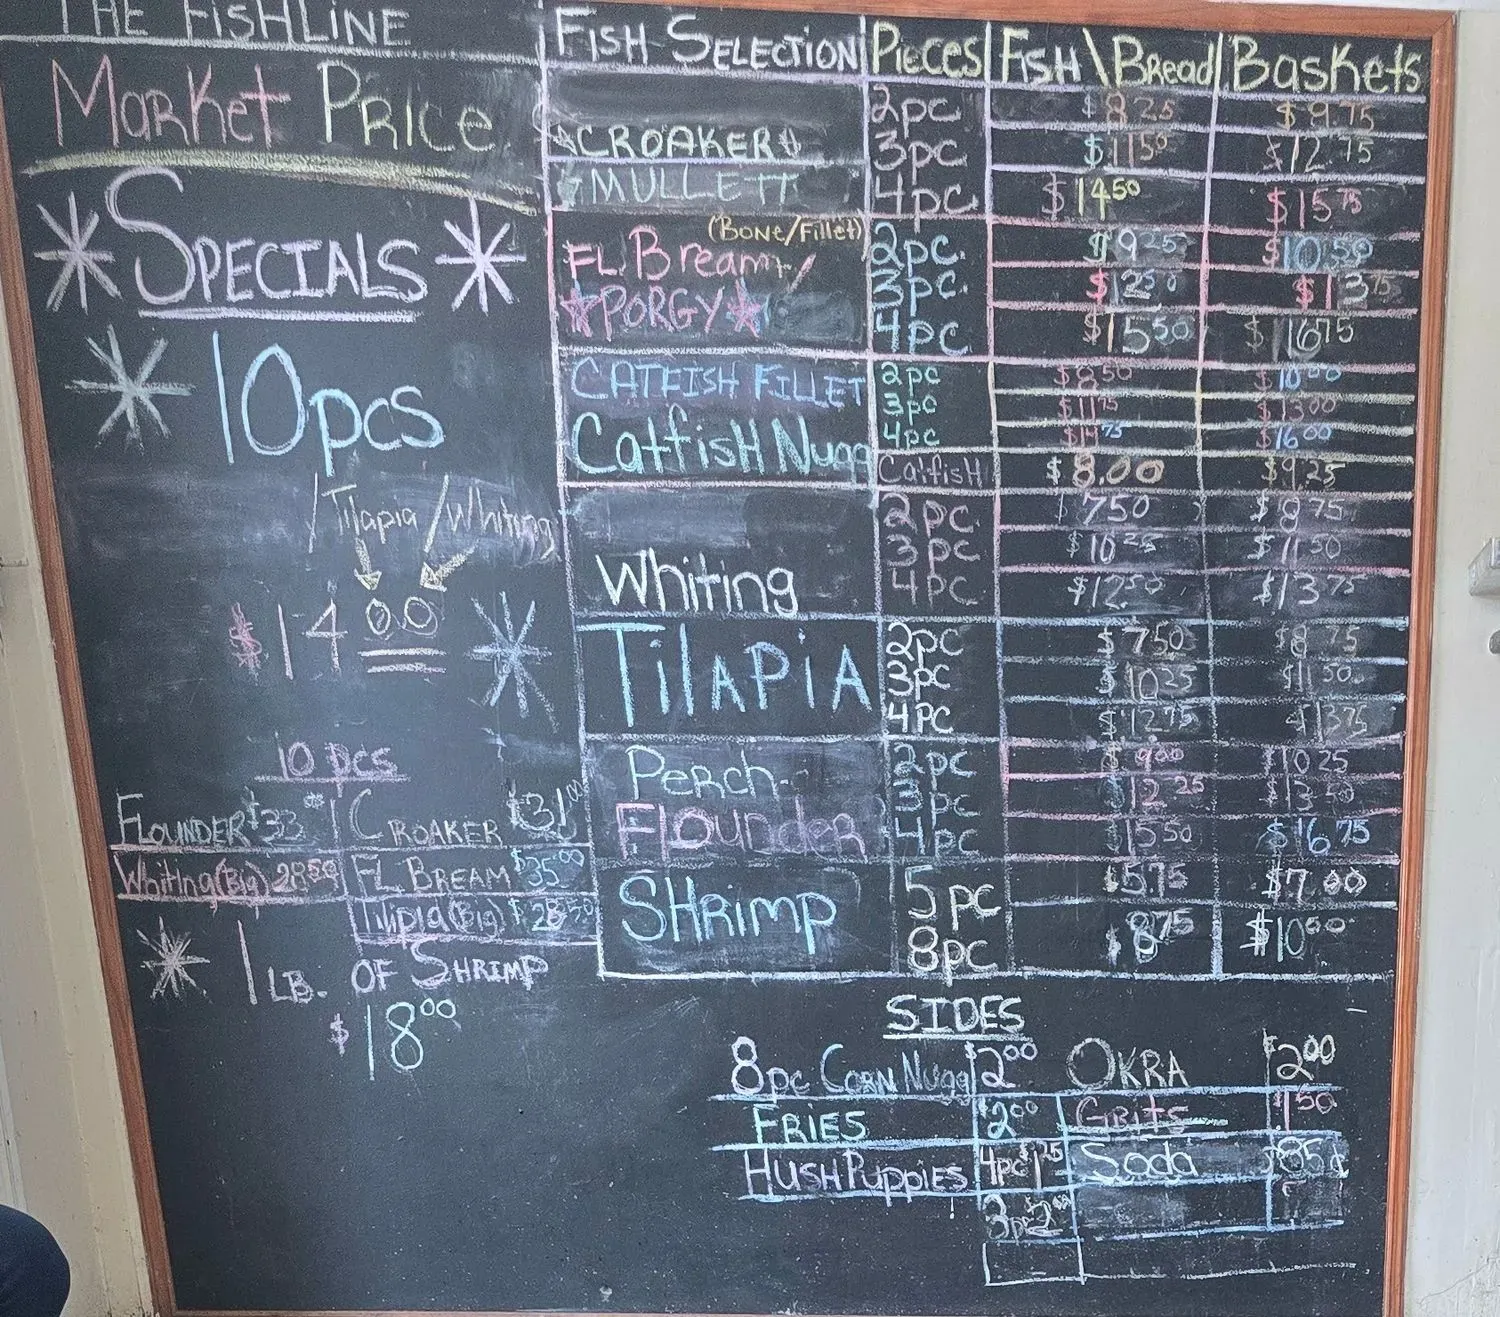 THE FISHLINE
Market Price
SPECIALS
10pcs
/Tilapia/Whiting
$14.00
10 pcs
FLOUNDER $33.00 CROAKER $31.00
Whiting(Big) 28.50 FL BREAM $35.00
Tilipia(Big) $28.50
1 LB. OF SHRIMP
$18.00
FISH SELECTION PIECES FISH\BREAD BASKETS
2pc $8.25 $9.75
CROAKER 3pc $11.50 $12.75
MULLETT 4pc $14.50 $15.75
(BONE/Fillet)
FL Bream 2pc. $9.25 $10.50
PORGY 3pc. $12.50 $13.75
4pc $15.50 $16.75
CATFISH FILLET 2pc $8.50 $10.00
3pc $11.75 $13.00
CatfisH Nugg 4pc $14.75 $16.00
CatfisH $8.00 $9.25
2pc $7.50 $8.75
3pc $10.25 $11.50
Whiting 4pc $12.50 $13.75
TilAPiA 2pc $7.50 $8.75
3pc $10.25 $11.50
4PC $12.75 $13.75
Perch 2pc $9.00 $10.25
3pc $12.25 $13.50
Flounder 4pc $15.50 $16.75
SHrimp 5pc $5.75 $7.00
8pc $8.75 $10.00
SIDES
8pc CORN Nugg $2.00 OKRA $2.00
FRiES $2.00 GRitS $1.50
HUSHPuppies 4pc $1.25 Soda $.85¢